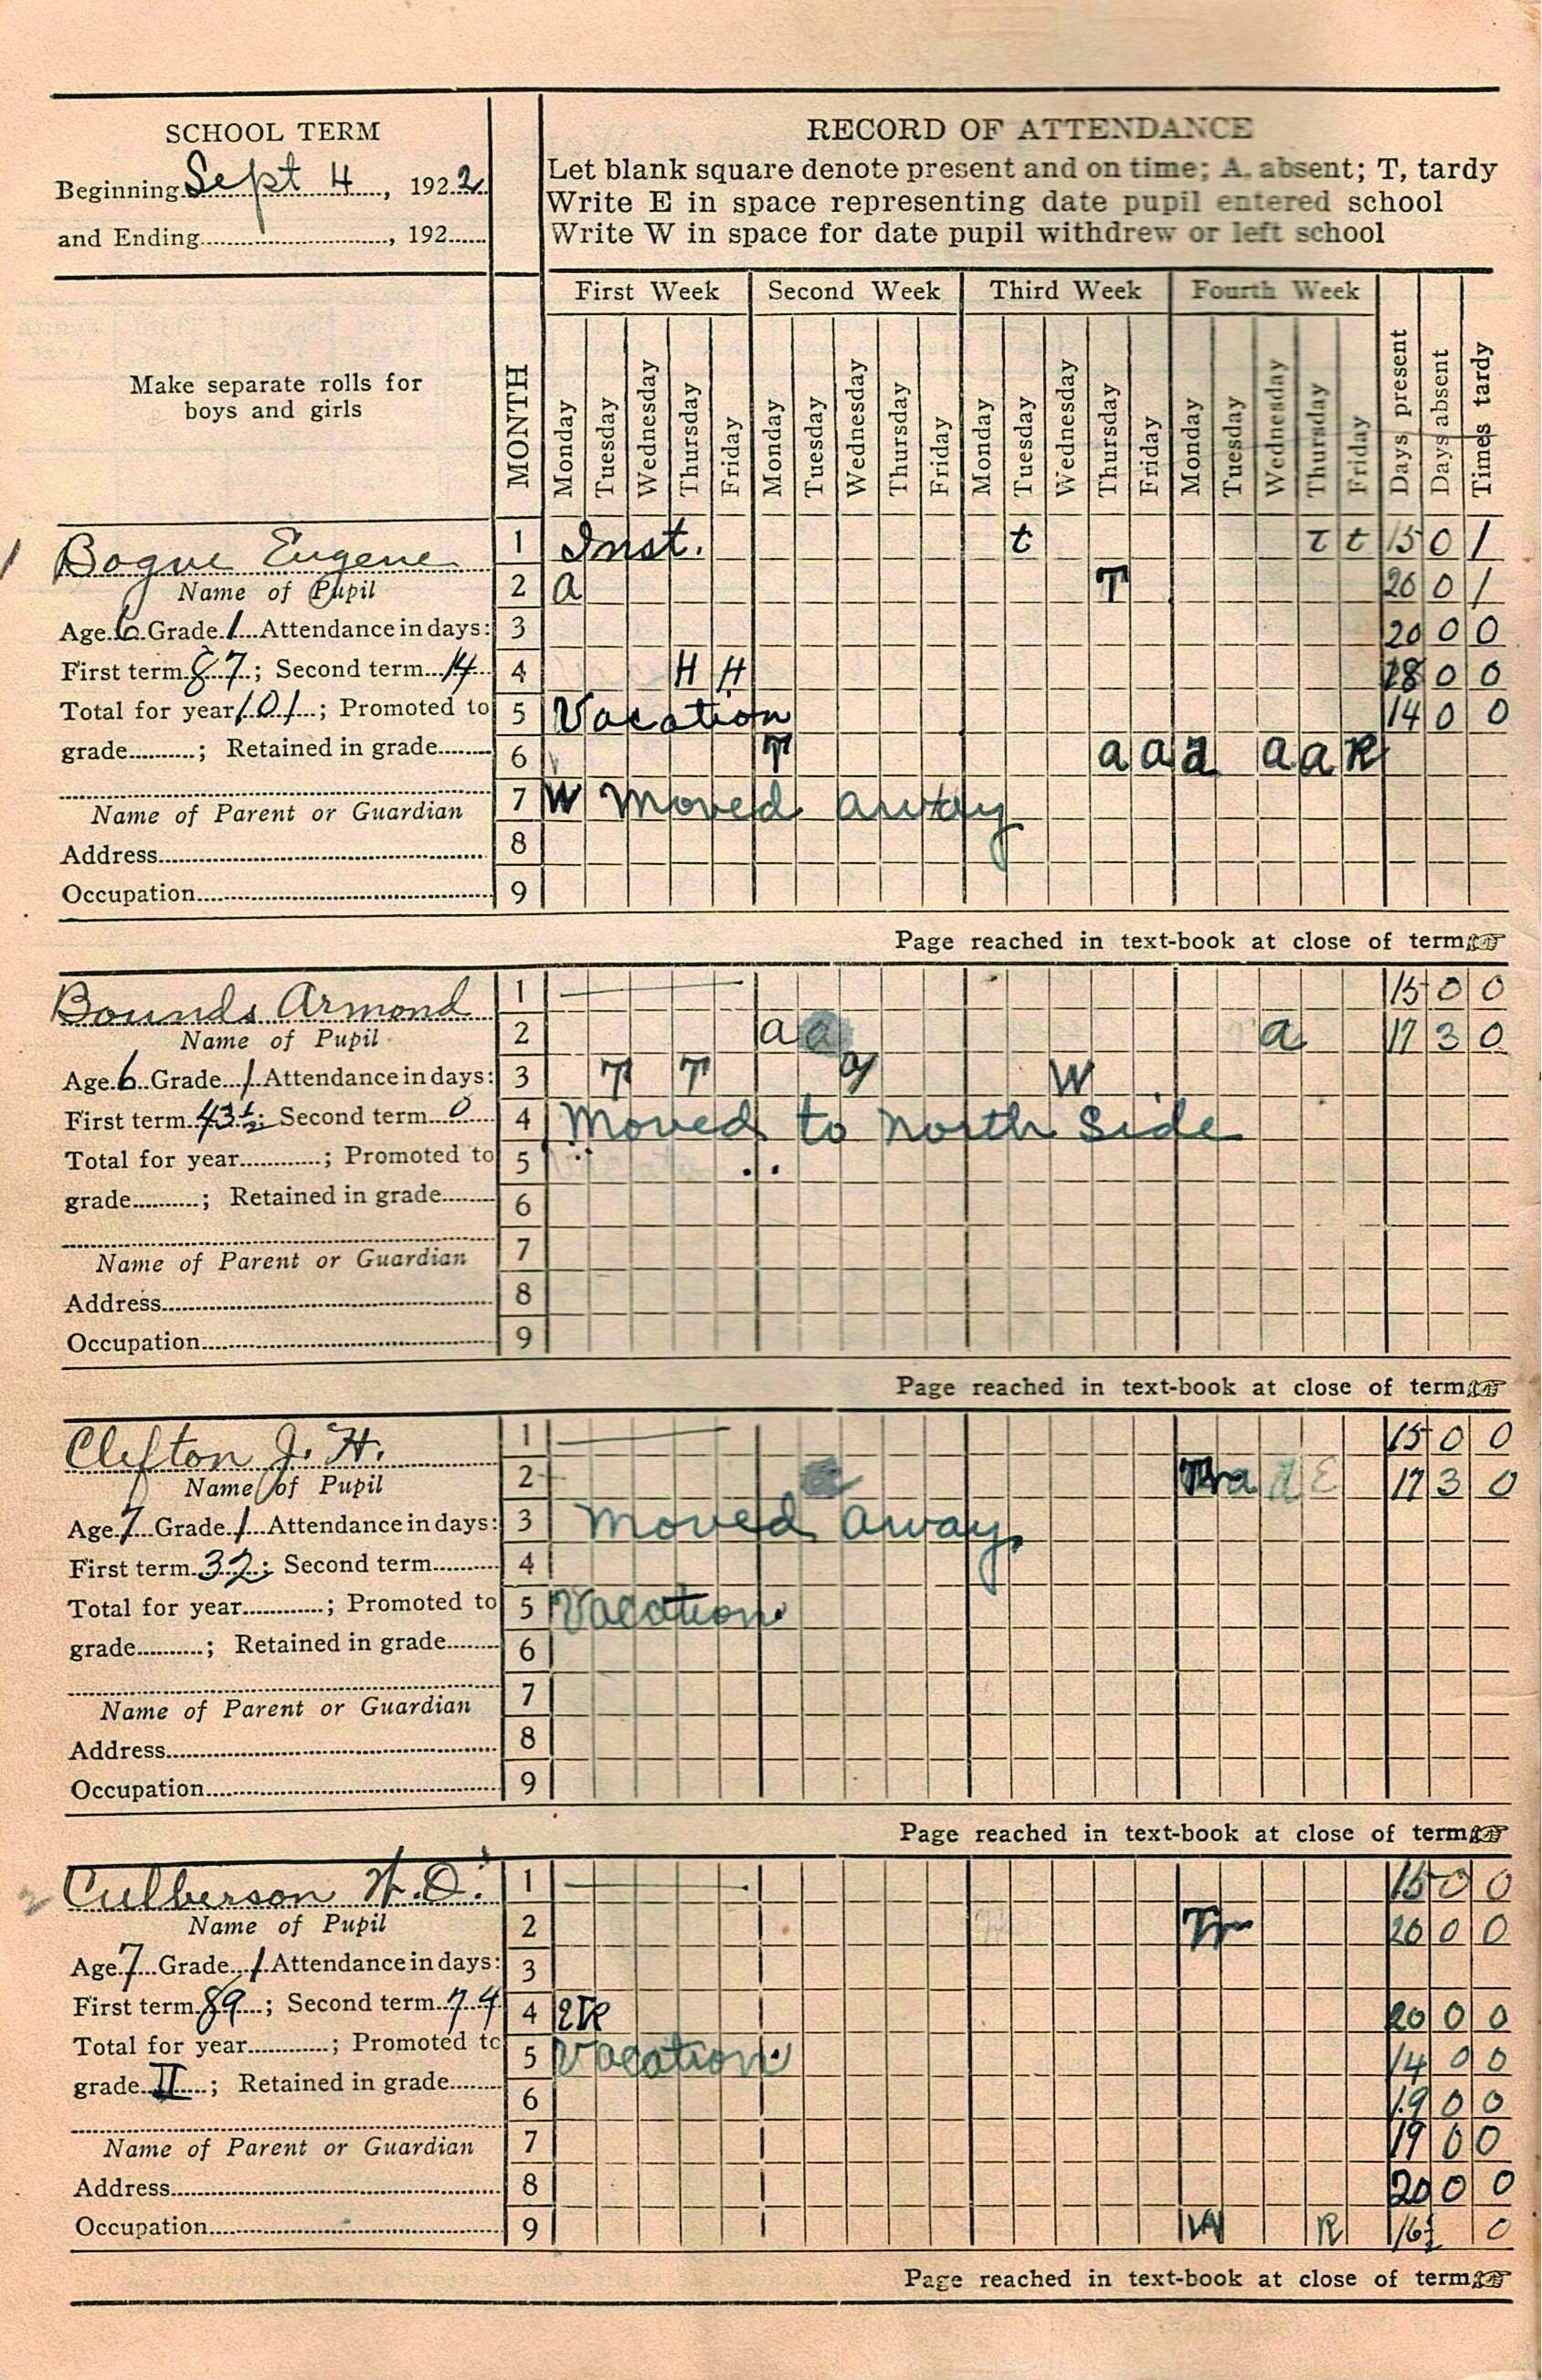 SCHOOL TERM
Beginning Sept 4, 1922
and Ending, 192
RECORD OF ATTENDANCE
Let blank square denote present and on time; A, absent; T, tardy
Write E in space representing date pupil entered school
Write W in space for date pupil withdrew or left school
Make separate rolls for
boys and girls
MONTH
First Week Second Week Third Week Fourth Week
Monday Tuesday Wednesday Thursday Friday Monday Tuesday Wednesday Thursday Friday Monday Tuesday Wednesday Thursday Friday Monday Tuesday Wednesday Thursday Friday Days present Days absent Times tardy
1 Bogue Eugene
Name of Pupil
Age 6 Grade 1 Attendance in days:
First term 87; Second term 14
Total for year 101; Promoted to
grade; Retained in grade
Name of Parent or Guardian
Address
Occupation
1 Inst. t t t 15 0 1
2 a T 20 0 1
3 20 0 0
4 H H 18 0 0
5 Vacation 14 0 0
6 T a a a a a R
7 W Moved away
8
9
Page reached in text-book at close of term
Bounds Armond
Name of Pupil
Age 6 Grade 1 Attendance in days:
First term 43½; Second term 0
Total for year; Promoted to
grade; Retained in grade
Name of Parent or Guardian
Address
Occupation
1 15 0 0
2 a a a 17 3 0
3 T T W
4 Moved to North Side
5
6
7
8
9
Page reached in text-book at close of term
Clifton J. H.
Name of Pupil
Age 7 Grade 1 Attendance in days:
First term 32; Second term
Total for year; Promoted to
grade; Retained in grade
Name of Parent or Guardian
Address
Occupation
1 15 0 0
2 a 17 3 0
3 Moved away
4
5 Vacation.
6
7
8
9
Page reached in text-book at close of term
2 Culberson H. D.
Name of Pupil
Age 7 Grade 1 Attendance in days:
First term 89; Second term 74
Total for year; Promoted to
grade II; Retained in grade
Name of Parent or Guardian
Address
Occupation
1 15 0 0
2 Tr 20 0 0
3
4 20 0 0
5 Vacation. 14 0 0
6 19 0 0
7 19 0 0
8 20 0 0
9 W R 16½ 0
Page reached in text-book at close of term